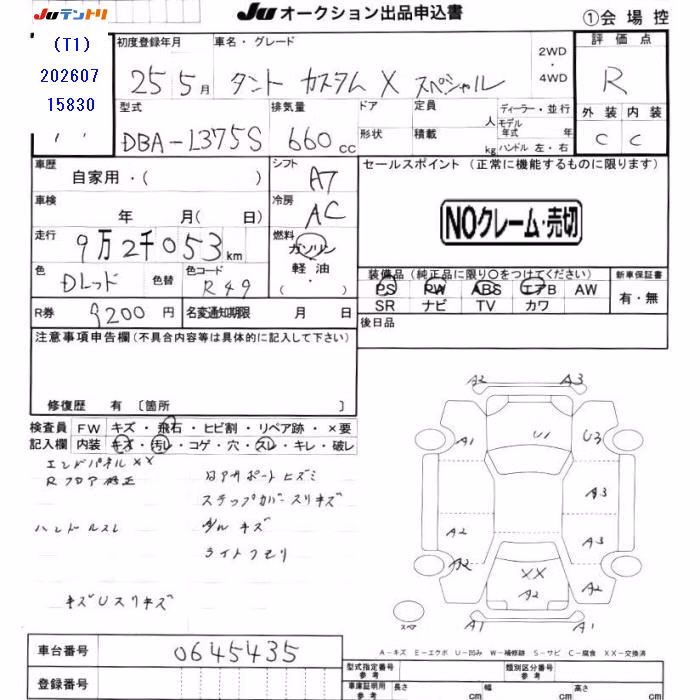 Juテントリ
Ju オークション出品申込書
①会場控
(T1)
202607
15830
初度登録年月
25 5月
車名・グレード
タント カスタム X スペシャル
2WD
・
4WD
評価点
R
型式
DBA-L375S
排気量
660cc
ドア
形状
定員 人
積載 kg
ディーラー・並行
モデル年式 年
ハンドル 左・右
外装 内装
C C
車歴
自家用・( )
シフト
AT
セールスポイント (正常に機能するものに限ります)
NOクレーム・売切
車検
年 月( 日)
冷房
AC
走行
9万2千053km
燃料
ガソリン
軽油・
( )
色
Dレッド
色替
色コード
R49
装備品 (純正品に限り○をつけてください)
PS PW ABS エアB AW
SR ナビ TV カワ
新車保証書
有・無
R券
9200円
名変通知期限 月 日
後日品
注意事項申告欄 (不具合内容等は具体的に記入して下さい)
修復歴 有 〔箇所 〕
検査員
記入欄
FW キズ・飛石・ヒビ割・リペア跡・×要
内装 キズ・汚レ・コゲ・穴・スレ・キレ・破レ
エンドパネルXX
Rフロア修正
ステップカバースリキズ
ハンドルスレ
ライトクモリ
A2 A3
A1 U1 U3
A3
A2 A3
A2 XX A2
A2
A1 A1
スペア
A-キズ E-エクボ U-凹み W-補修跡 S-サビ C-腐食 XX-交換済
車台番号
0645435
登録番号
型式指定番号
参考
類別区分番号
参考
車庫証明用
参考
長さ cm
幅 cm
高さ cm